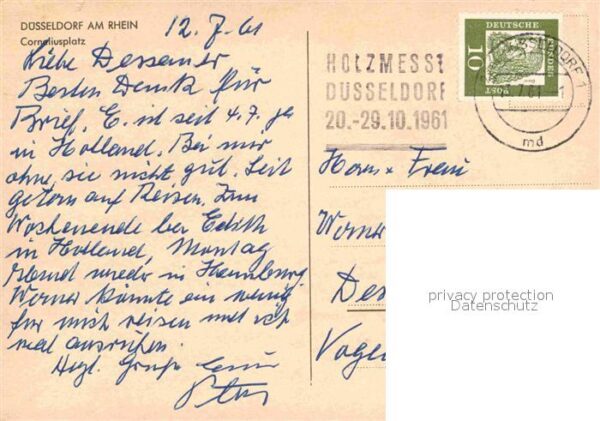 DÜSSELDORF AM RHEIN
Corneliusplatz
12. 7. 61
Liebe Dessauer
Besten Dank für
Brief. E. ist seit 4.7. ja
in Holland. Bei mir
ohne sie nicht gut. Seit
gestern auf Reisen. Zum
Wochenende bei Edith
in Holland, Montag
Abend wieder in Hamburg.
Werner könnte ein wenig
für mich reisen und ich
mal ausruhen.
Herzl. Grüße Euer
DEUTSCHE
BUNDES
POST
10
DÜSSELDORF 1
md
HOLZMESSE
DÜSSELDORF
20.-29.10.1961
Herrn + Frau
Werner
Des
Voge
privacy protection
Datenschutz